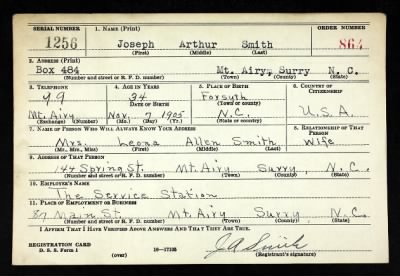 SERIAL NUMBER 1. NAME (Print) ORDER NUMBER
1256 Joseph Arthur Smith 864
(First) (Middle) (Last)
2. ADDRESS (Print)
Box 484 Mt. Airy, Surry N. C.
(Number and street or R. F. D. number) (Town) (County) (State)
3. TELEPHONE 4. AGE IN YEARS 5. PLACE OF BIRTH 6. COUNTRY OF CITIZENSHIP
99 34 Forsyth
DATE OF BIRTH (Town or county)
Mt. Airy Nov. 7 1905 N.C. U.S.A.
(Exchange) (Number) (Mo.) (Day) (Yr.) (State or country)
7. NAME OF PERSON WHO WILL ALWAYS KNOW YOUR ADDRESS 8. RELATIONSHIP OF THAT PERSON
Mrs. Leona Allen Smith Wife
(Mr., Mrs., Miss) (First) (Middle) (Last)
9. ADDRESS OF THAT PERSON
Spring St. Mt. Airy Surry, N.C.
(Number and street or R. F. D. number) (Town) (County) (State)
10. EMPLOYER'S NAME
The Service Station
11. PLACE OF EMPLOYMENT OR BUSINESS
Main St. Mt. Airy Surry N.C.
(Number and street or R. F. D. number) (Town) (County) (State)
I AFFIRM THAT I HAVE VERIFIED ABOVE ANSWERS AND THAT THEY ARE TRUE.
REGISTRATION CARD J A Smith
D. S. S. Form 1 16—17105 (Registrant's signature)